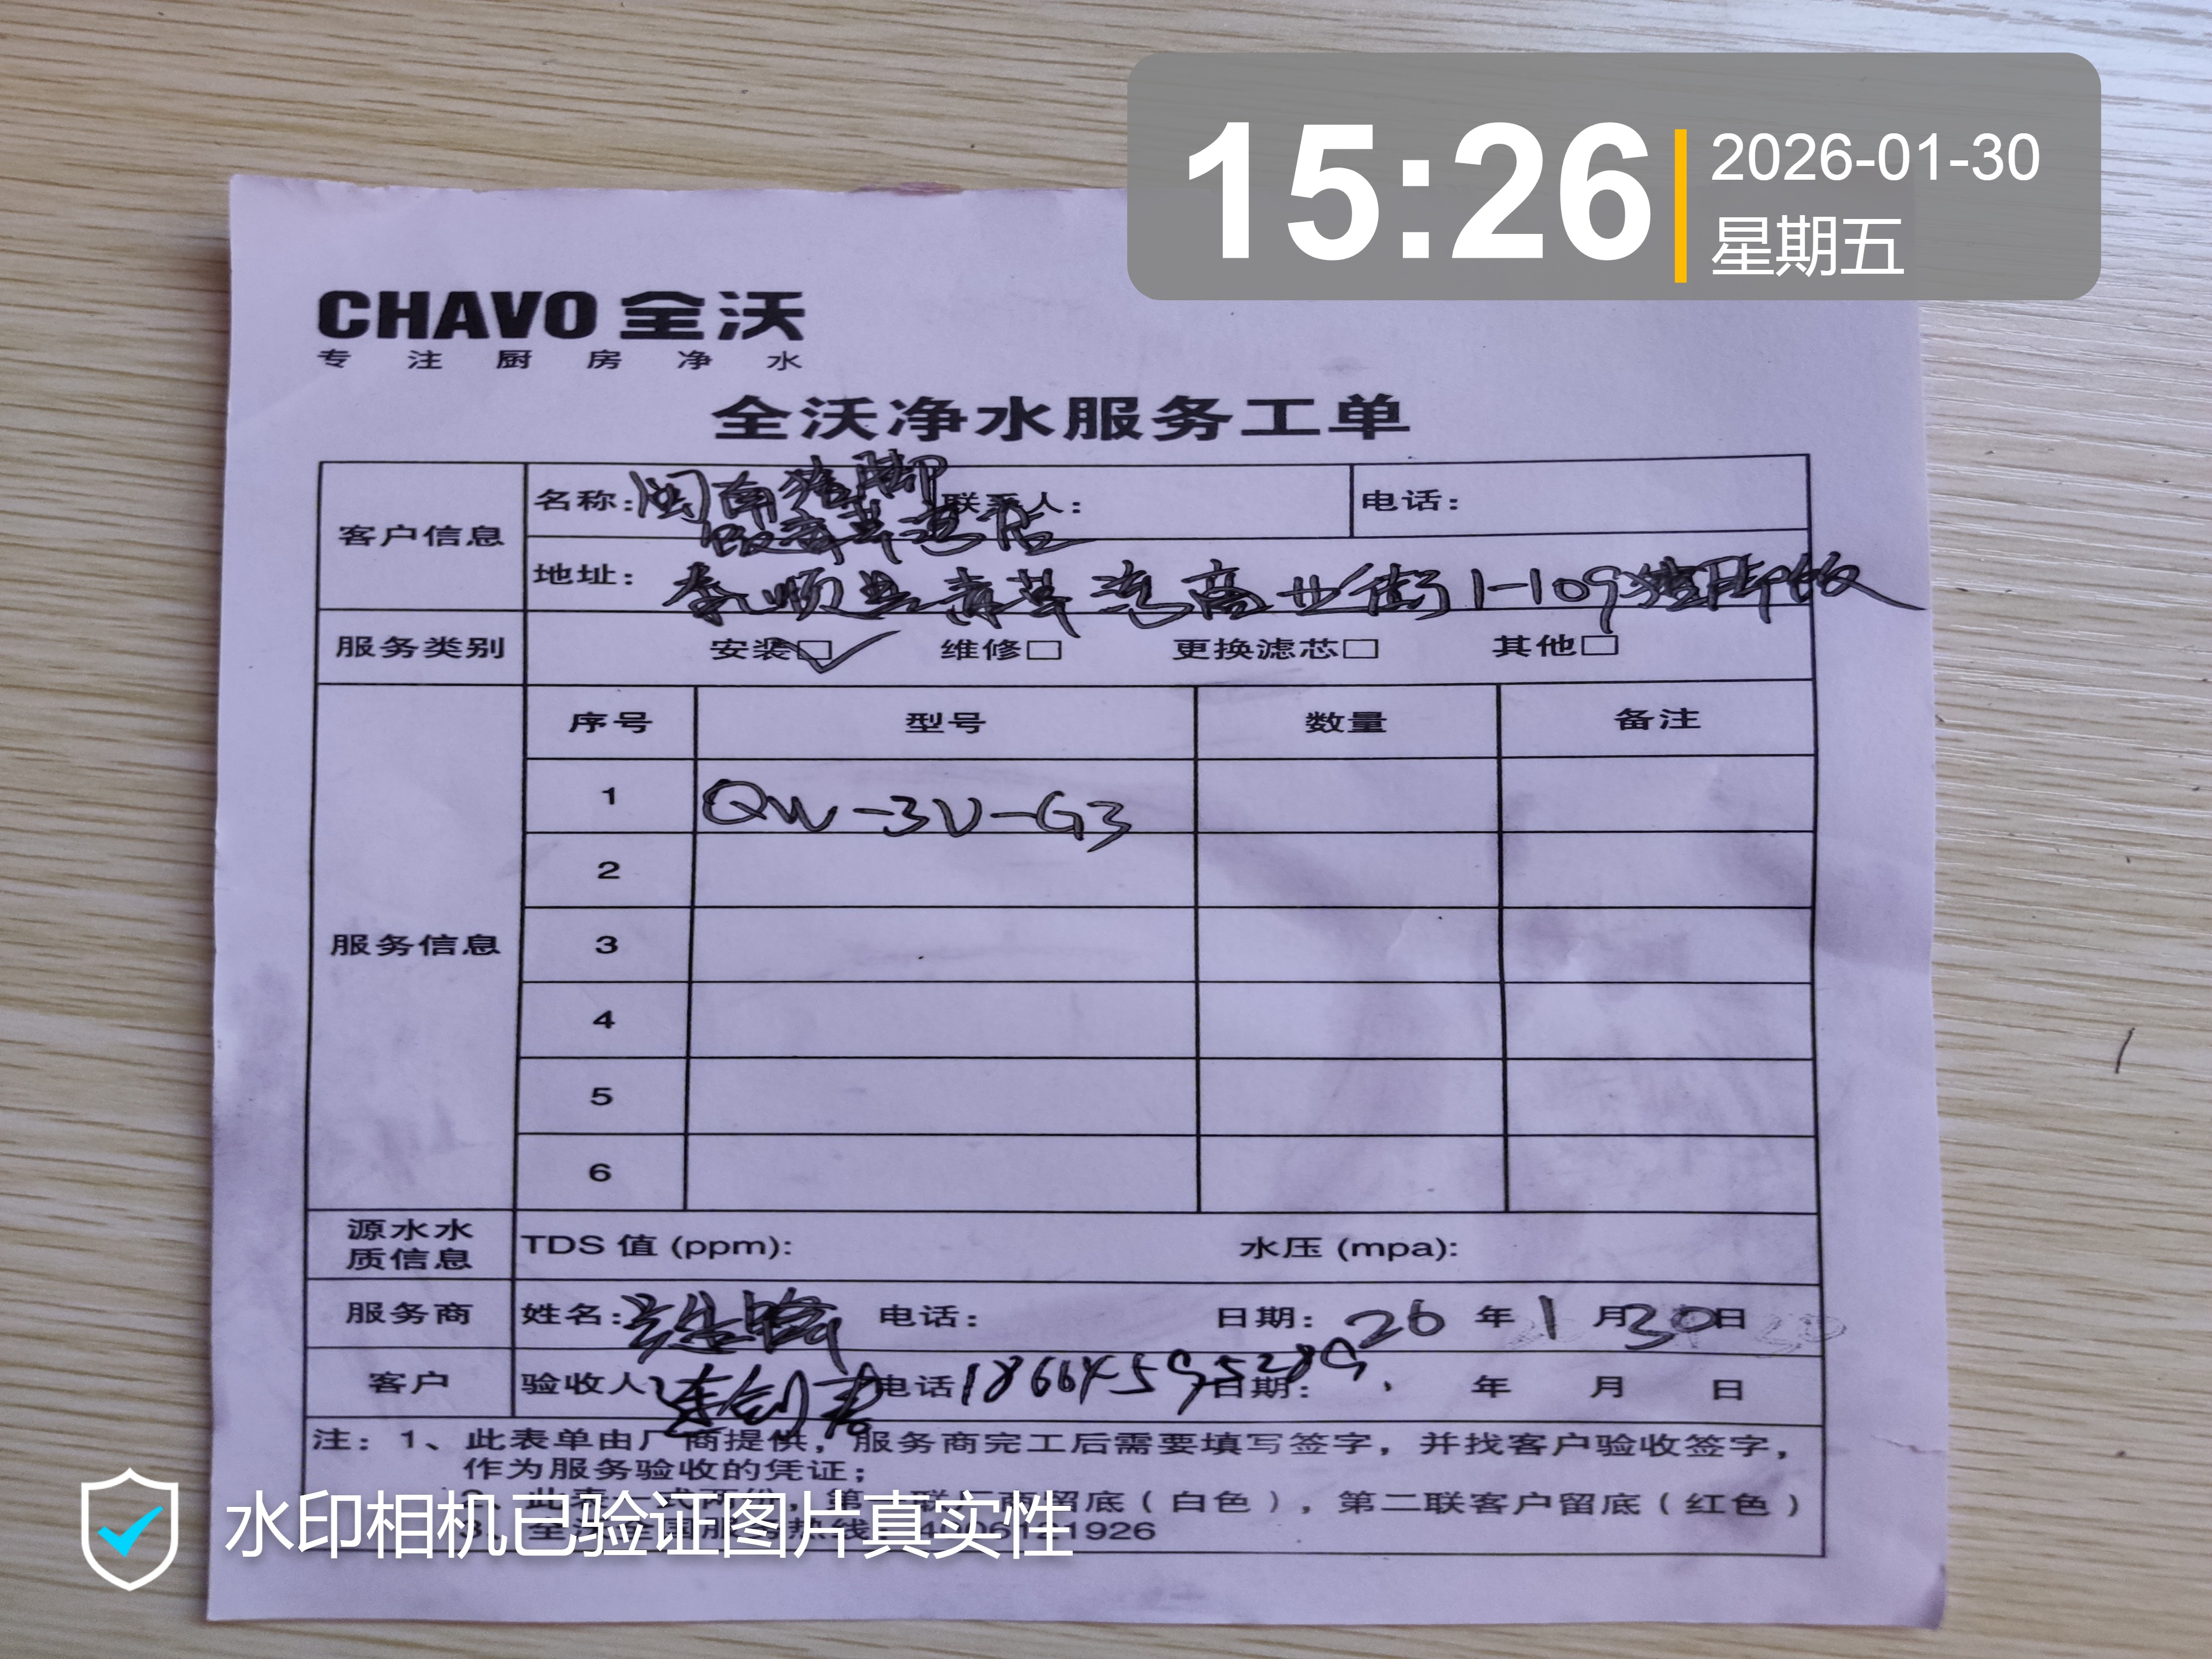 15:26
2026-01-30
星期五
CHAVO 全沃
专注厨房净水
全沃净水服务工单
客户信息
名称: 闽南猪脚 联系人: 电话:
店
地址: 泰顺县 湾商业街1-109猪脚饭
服务类别 安装☑ 维修□ 更换滤芯□ 其他□
服务信息 序号 型号 数量 备注
1 QW-3U-G3
2
3
4
5
6
源水水质信息 TDS 值 (ppm): 水压 (mpa):
服务商 姓名: 电话: 日期: 26 年 1 月 30 日
客户 验收人 电话 18664595289 日期: 年 月 日
注: 1、此表单由厂商提供，服务商完工后需要填写签字，并找客户验收签字，
作为服务验收的凭证；
联 留底（白色），第二联客户留底（红色）
1926
水印相机已验证图片真实性